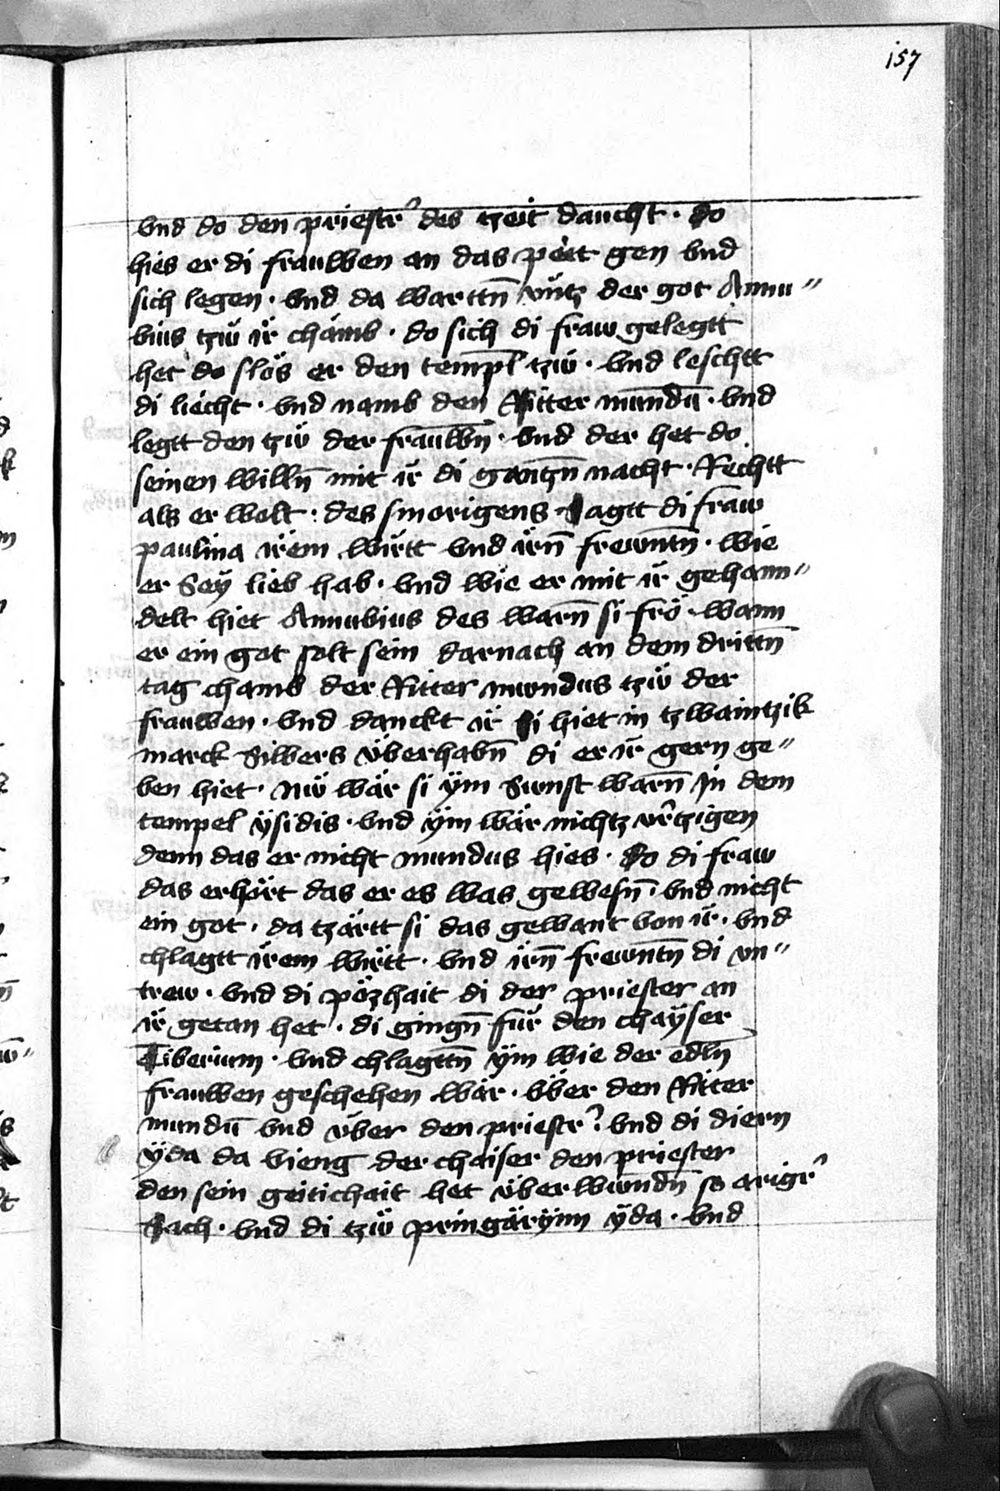 157
vnd do den priestr̉ des tzeit daucht · do
hies er di frauwen an das pett gen vnd
sich legen · vnd da warttn̄ vntz der got Annu〃
bius tzw̆ ir̆ chamb · do sich di fraw gelegtt
het do slos er den templ̄ tzw̆ · vnd leschtt
di liecht · vnd namb den Ritter mundū · vnd
legtt den tzw̆ der frauwn̄ · vnd der het do
seinen willn̄ mit ir̆ di gantzn̄ nacht · Rechtt
als er wolt · des smorigens Sagtt di fraw
paulina irem wirtt vnd irn̄ frewntn̄ · wie
er Sey lieb hab · vnd wie er mit ir̆ gehann〃
delt hiet Annubius des warn̄ si fro · wann
er ein got solt sein darnach an dem drittn̄
tag chamb der Ritter mundus tzw̆ der
frauwen · vnd danckt ir̆ Si hiet in tzwaintzik
marck Silbers überhabn̄ di er ir̆ gern ge〃
ben hiet · nw̆ wär si ÿm Sunst warn̄ jn dem
tempel ÿsidis · vnd ÿm wär nichtz vr̉tzigen
denn das er nicht mundus hies · Do di fraw
das erhört das er es was gewesn̄ · vnd nicht
ein got · da tzärtt si das gewant von ir̆ · vnd
chlagtt irem wirtt · vnd irn̄ frewntn̄ di vn〃
trew · vnd di pözhait di der priester an
ir̆ getan het · di gingn̄ für den chaÿser
Tiberium · vnd chlagttn̄ ÿm wie der edln̄
frauwen geschehen wär · vber den Ritter
mundū vnd über den priestr̉ · vnd di diern
ÿda da vieng der chaiser den priester
den sein geitichait het überwundn̄ so arigr̉
Sach · vnd di tzw̆ pringärÿnn ÿda · vnd